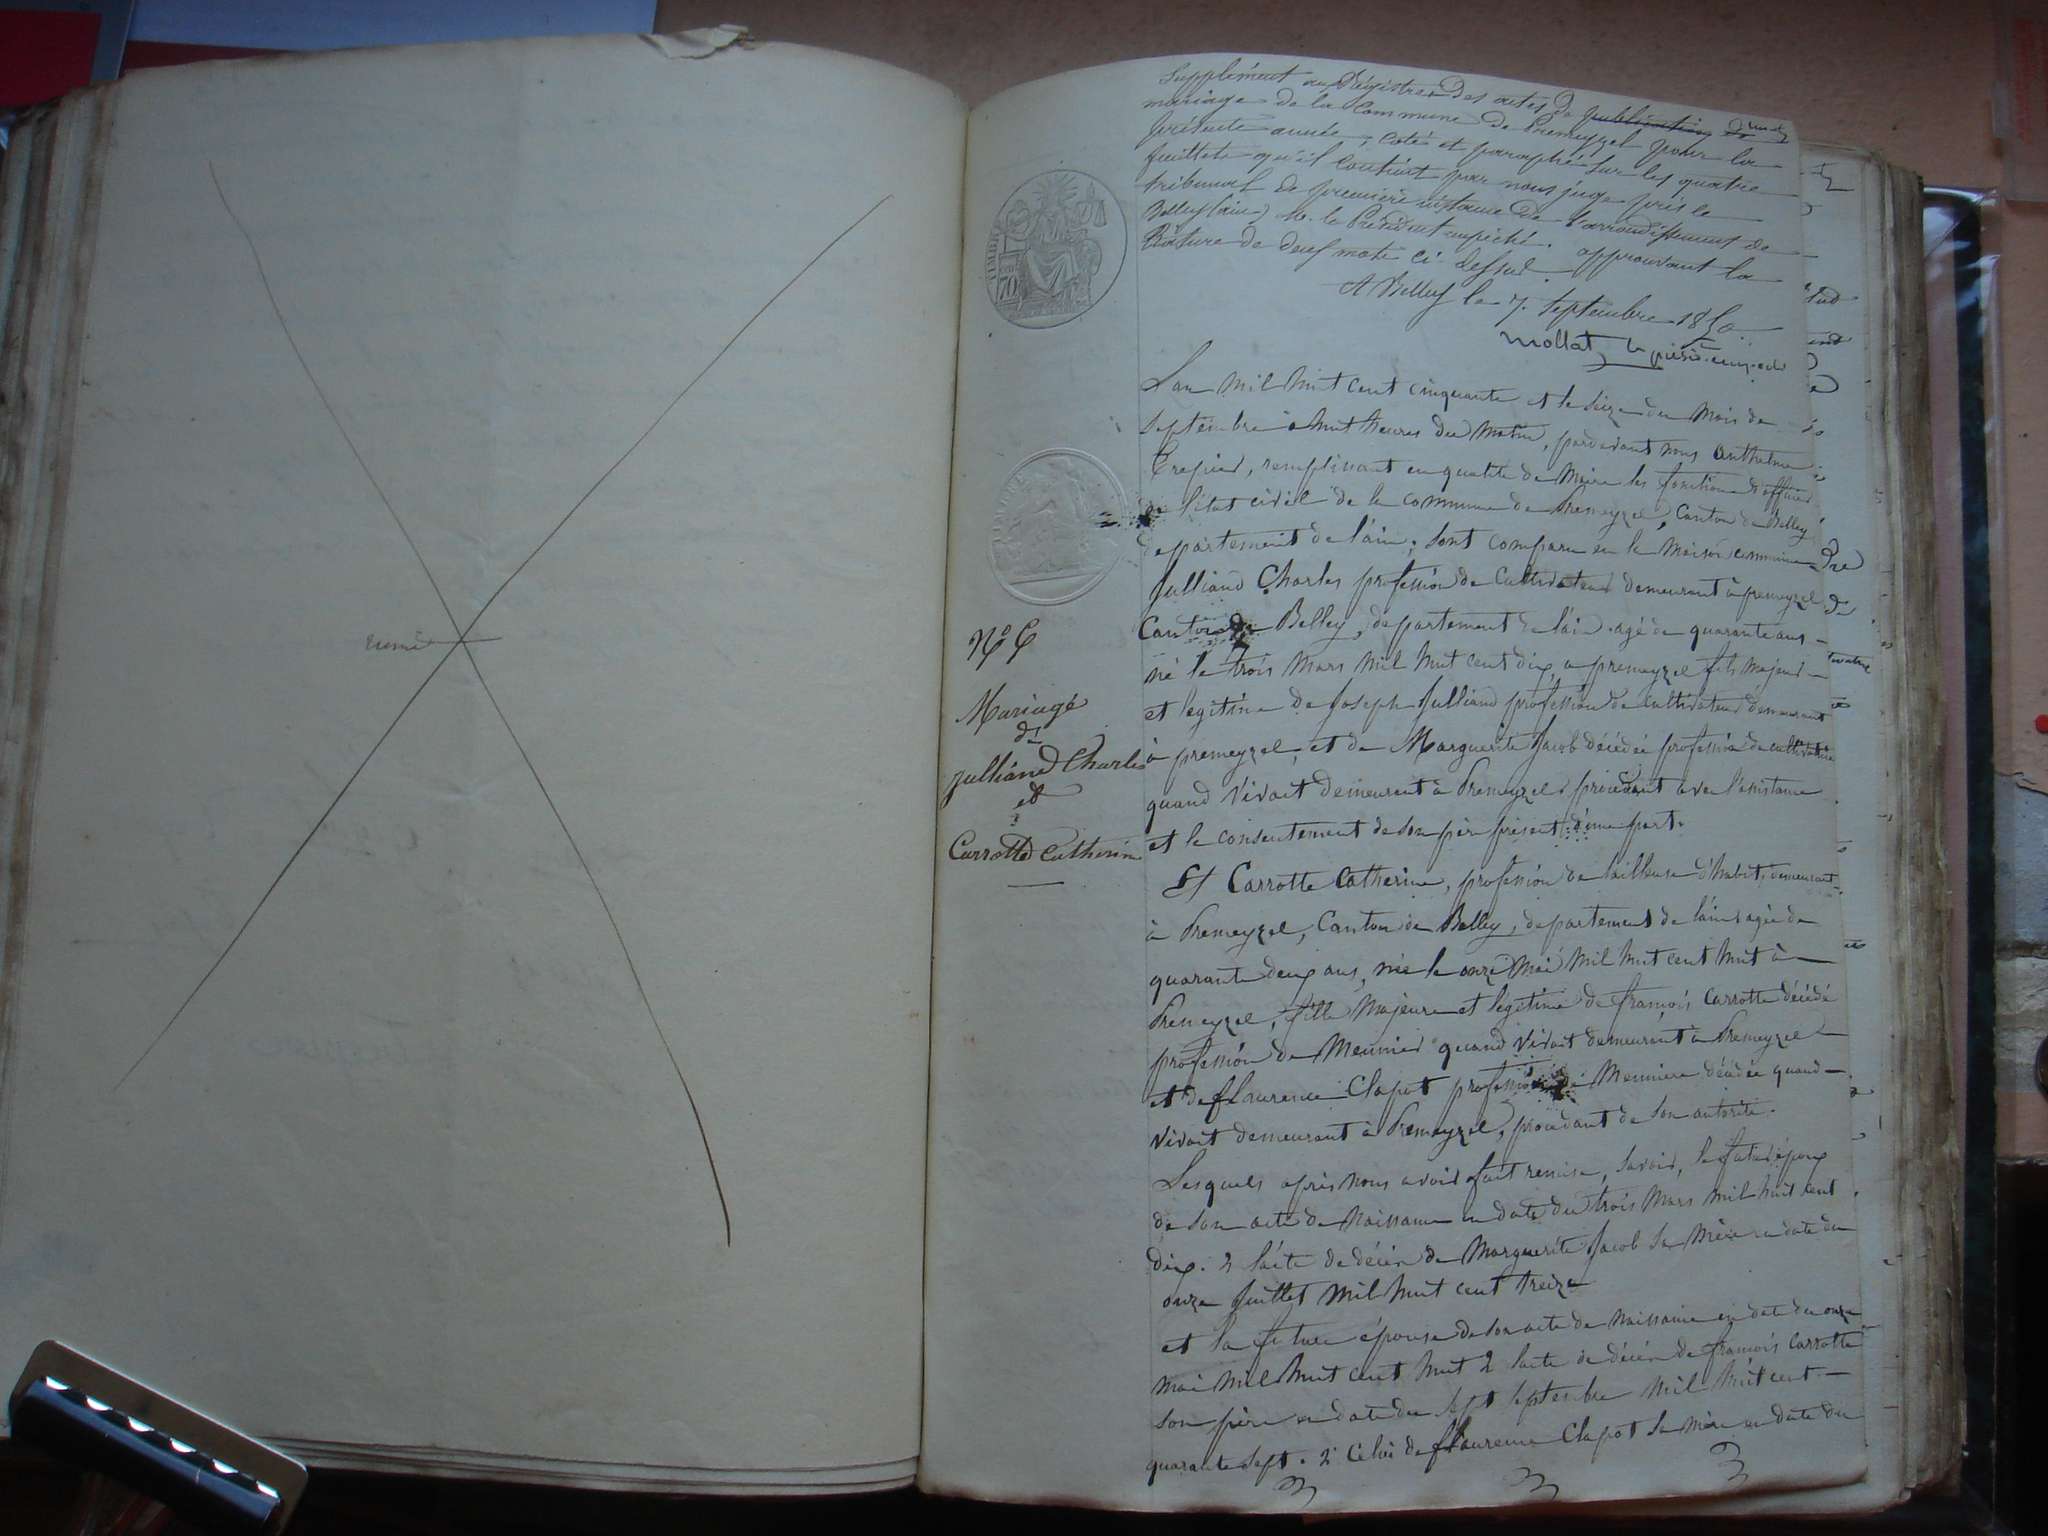 Supplément au Régistre des actes de publication de
mariage de la Commune de Premeyzel pour la
présente année, coté et paraphé sur les quatre
feuillets qu'il contient par nous juge près le
tribunal de première instance de l'arrondissement de
Belley (ain) M. le Président empêché. approuvant la
Râture de deux mots ci-dessus
A Belley le 7. Septembre 1850
Mollat
TIMBRE
70
L'an mil huit cent cinquante et le seize du Mois de
septembre à huit heures du Matin, pardevant nous Anthelme
Crepier, remplissant en qualité de Maire les fonctions d'officier
de l'état civil de la commune de Premeyzel, Canton de Belley
departement de l'ain, sont comparu en la Maison commune
Julliand Charles profession de Cultivateur demeurant à premeyzel
Canton de Belley, departement de l'ain agé de quarante ans
né le trois Mars Mil huit cent dix a premeyzel fils majeur
et legitime de Joseph Julliand profession de cultivateur demeurant
à premeyzel, et de Marguerite Jacob décédée profession de cultivatrice
quand vivait demeurant à Premeyzel procédant avec l'assistance
et le consentement de son père présent d'une part.
N° 6
Mariage
de
Julliand Charles
et
Carrotte Catherine
Et Carrotte Catherine, profession de tailleuse d'habit, demeurant
à Premeyzel, Canton de Belley, departement de l'ain agée de
quarante deux ans, née le onze Mai Mil huit cent huit à
Premeyzel, fille Majeure et legitime de françois Carrotte décédé
profession de Meunier quand vivait demeurant à Premeyzel
et de flaurence Clapot profession de Meuniere décédée quand
vivait demeurant à Premeyzel, procédant de son autorité.
Lesquels après nous avoir fait remise, savoir, le futur époux
de son acte de Naissance en date du trois Mars mil huit cent
dix. 2 l'acte de décès de Marguerite Jacob sa Mère en date du
onze Juillet Mil huit cent treize
et la future épouse de son acte de Naissance en date du onze
mai Mil huit cent huit 2 l'acte de décès de françois Carrotte
son père en date du sept septembre Mil huit cent
quarante sept. 2° Celui de flaurence Clapot sa mère en date du